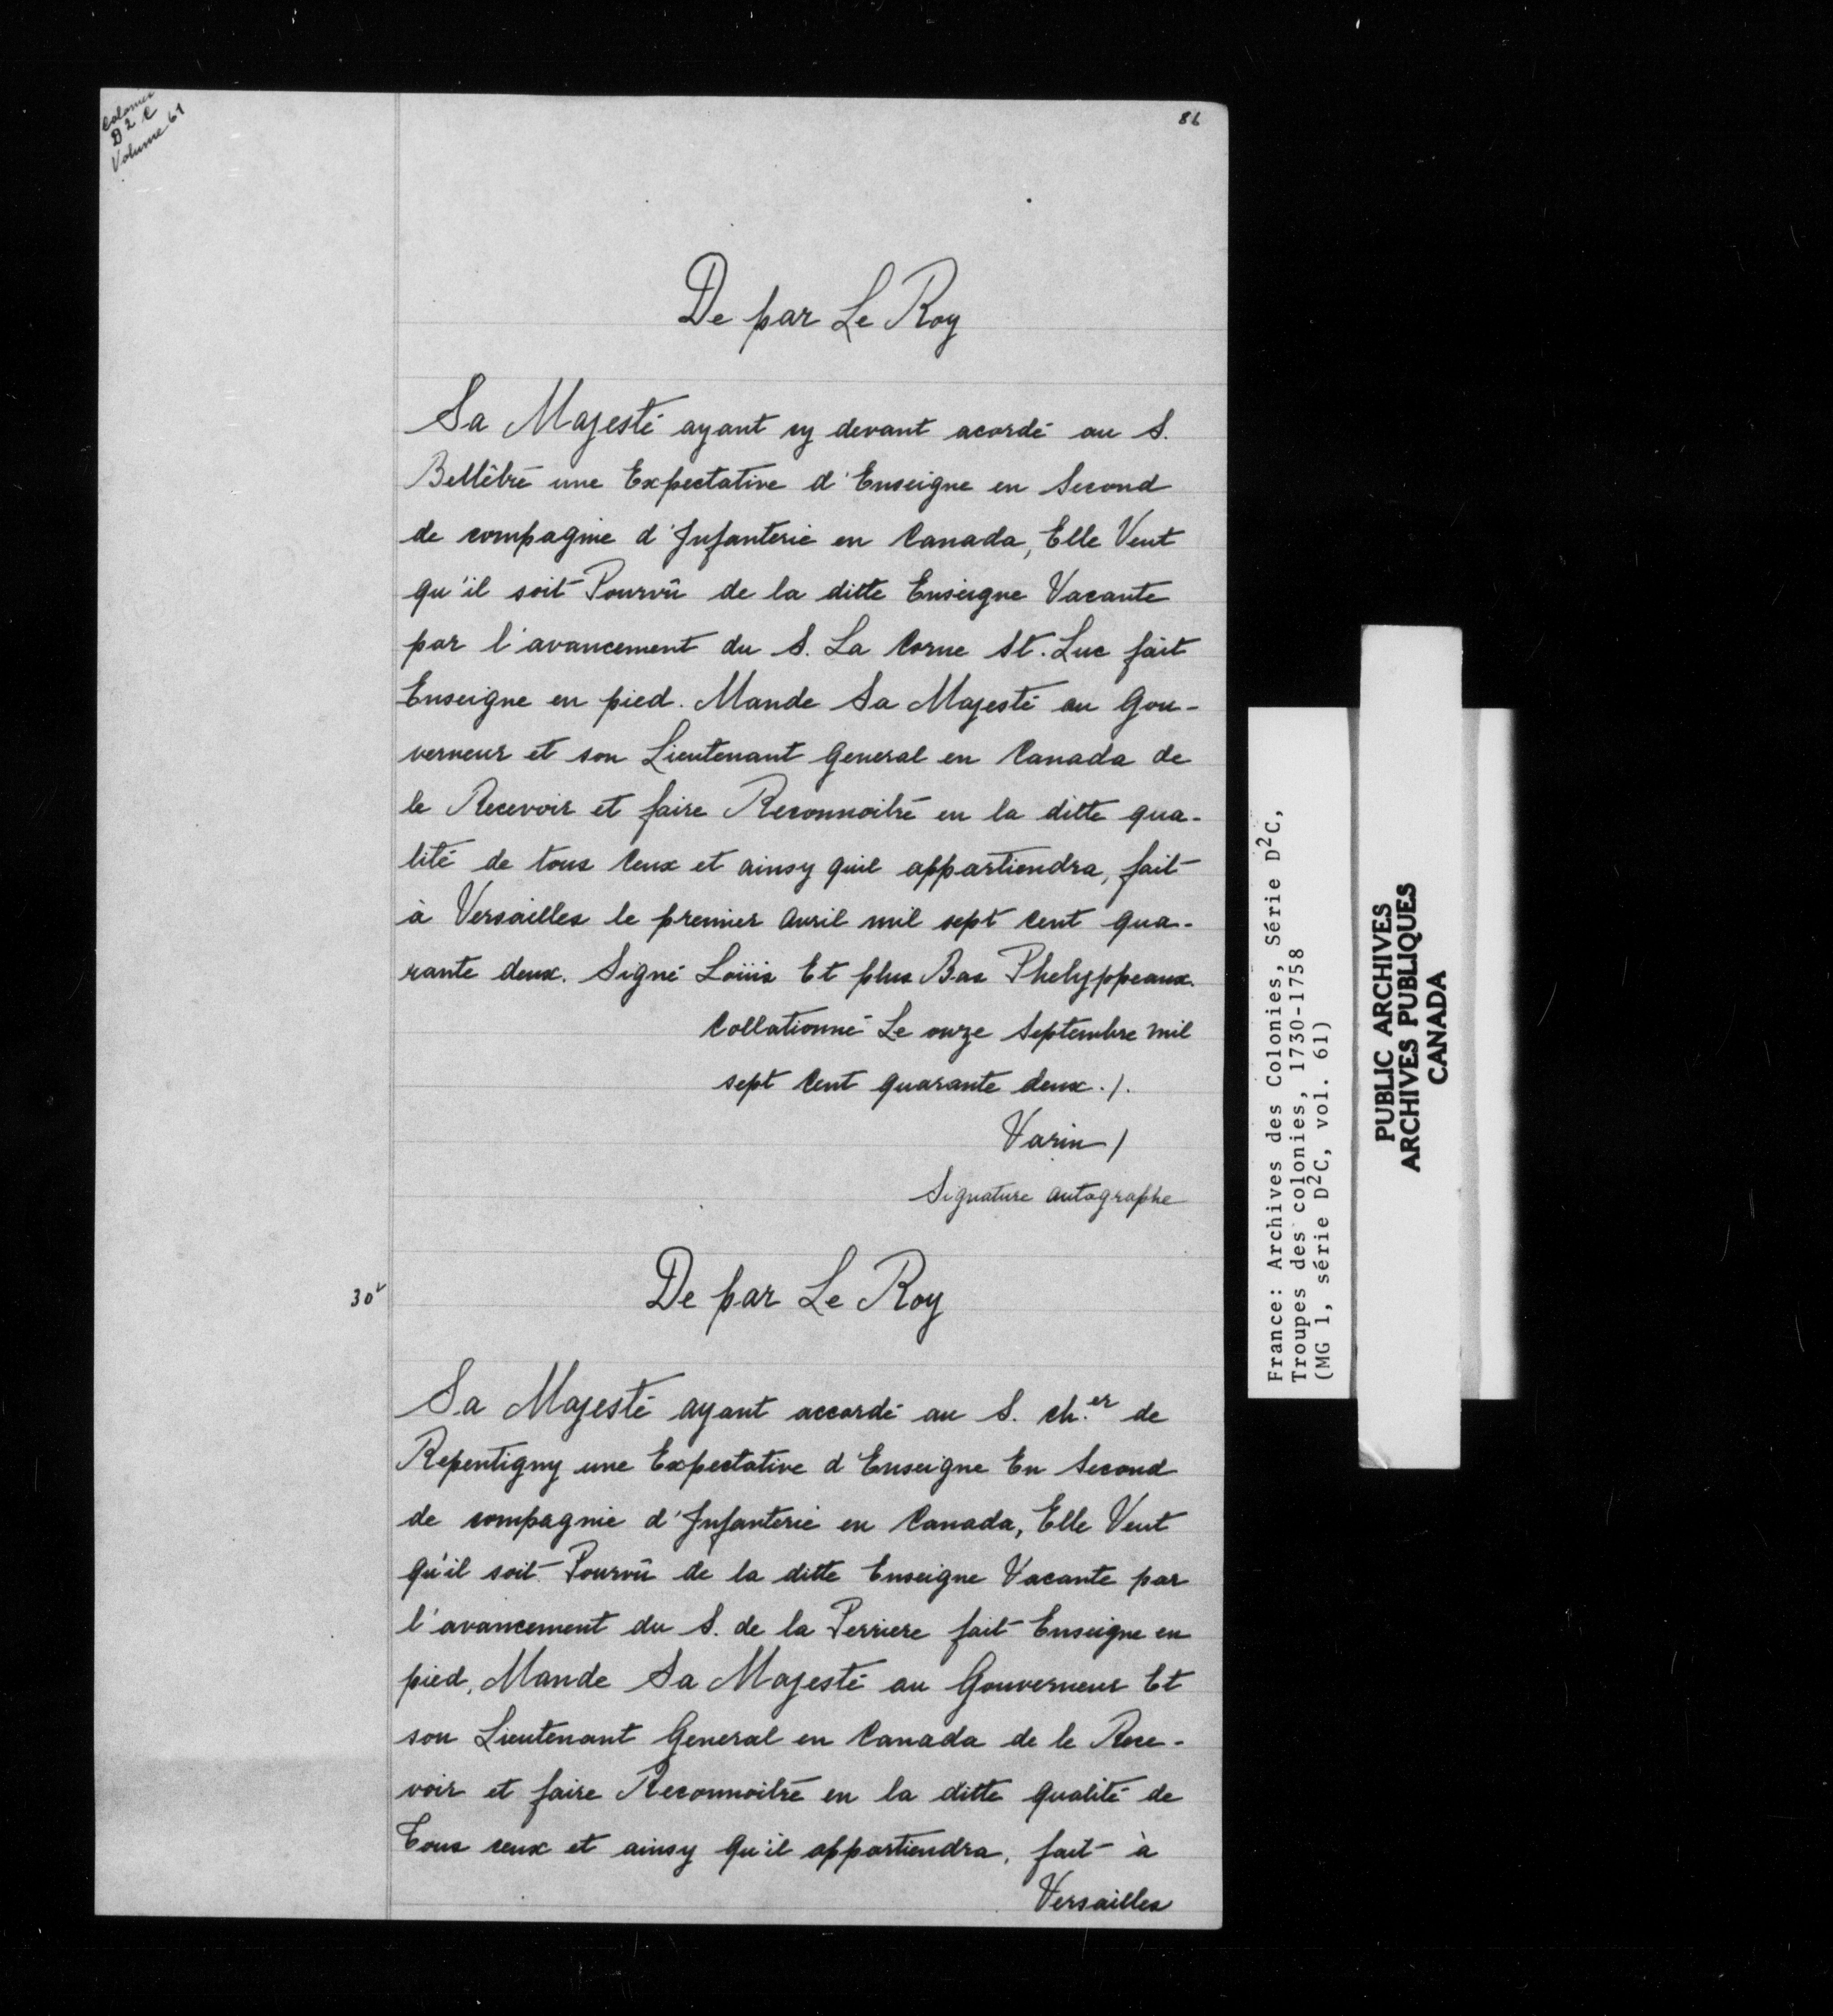 Colonies
D 2 C
Volume 61
86
De par Le Roy
Sa Majesté ayant cy devant acordé au S.
Bellêbre une Expectative d'Enseigne en Second
de compagnie d'Infanterie en Canada, Elle Veut
qu'il soit Pourvû de la ditte Enseigne Vacante
par l'avancement du S. La Corne St. Luc fait
Enseigne en pied. Mande Sa Majesté au Gou-
verneur et son Lieutenant General en Canada de
le Recevoir et faire Reconnoitre en la ditte qua-
lité de tous Ceux et ainsy quil appartiendra, fait
à Versailles le premier avril mil sept Cent qua-
rante deux. Signé Loüis Et plus Bas Phelyppeaux.
Collationné Le onze Septembre mil
sept Cent quarante deux ./.
Varin /
Signature autographe
30v
De par Le Roy
Sa Majesté ayant accordé au S. ch.er de
Repentigny une Expectative d'Enseigne En Second
de compagnie d'Infanterie en Canada, Elle Veut
qu'il soit Pourvû de la ditte Enseigne Vacante par
l'avancement du S. de la Perriere fait Enseigne en
pied, Mande Sa Majesté au Gouverneur Et
son Lieutenant General en Canada de le Rece-
voir et faire Reconnoitre en la ditte qualité de
Tous ceux et ainsy qu'il appartiendra, fait à
Versailles
France: Archives des Colonies, Série D2C,
Troupes des colonies, 1730-1758
(MG 1, série D2C, vol. 61)
PUBLIC ARCHIVES
ARCHIVES PUBLIQUES
CANADA